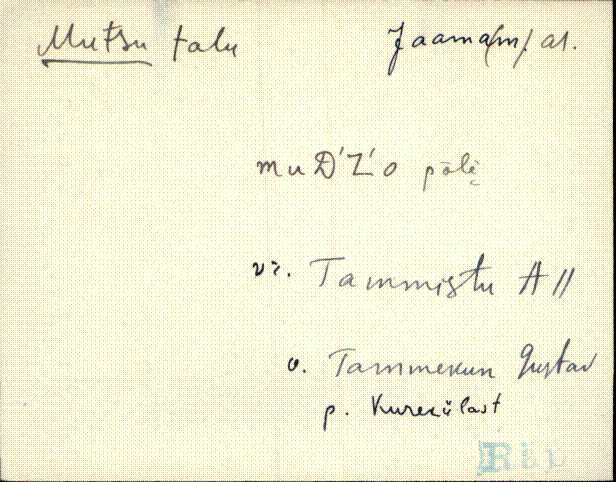 Mutsu talu
Jaama(m). as.
muD'Z'o
vi. Tammistu A II
o. Tammekun Gustav
p. Kurekülast
Räp